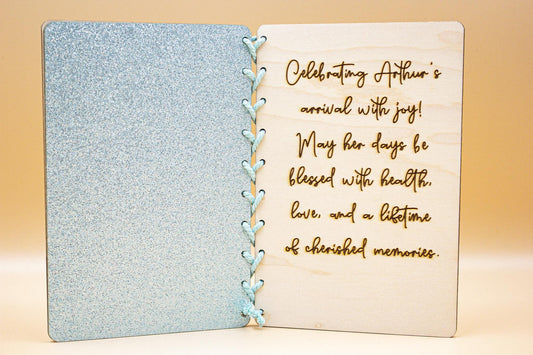 Celebrating Arthur's
arrival with joy!
May her days be
blessed with health,
love, and a lifetime
of cherished memories.